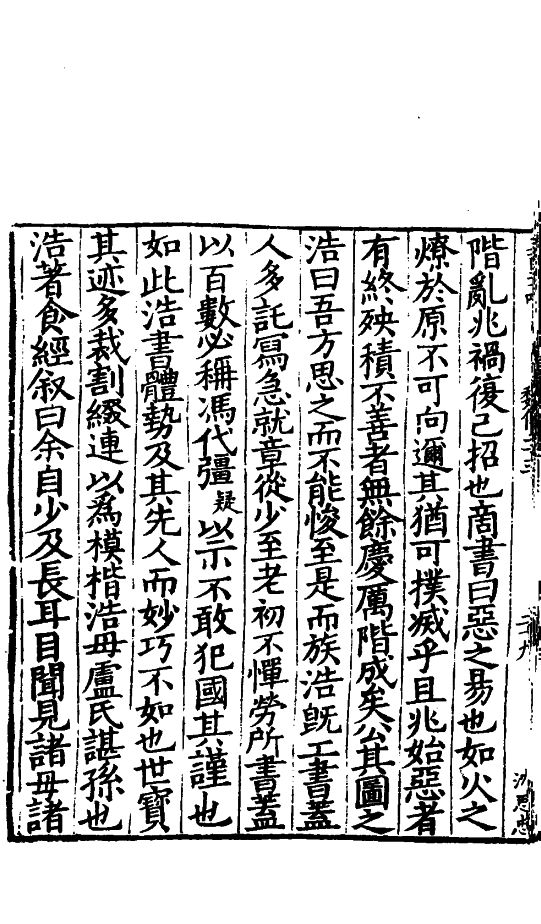 階亂兆禍復己招也商書曰惡之易也如火之
燎於原不可向邇其猶可撲滅乎且兆始惡者
有終殃積不善者無餘慶厲階成矣公其圖之
浩曰吾方思之而不能悛至是而族浩旣工書蓋
人多託寫急就章從少至老初不憚勞所書蓋
以百數必稱馮代彊疑以示不敢犯國其謹也
如此浩書體勢及其先人而妙巧不如也世寶
其迹多裁割綴連以爲模楷浩母盧氏諶孫也
浩著食經叙曰余自少及長耳目聞見諸母諸